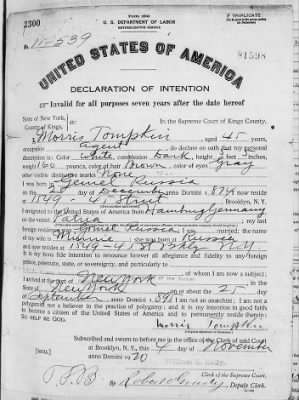 2300
Form 2203
U. S. DEPARTMENT OF LABOR
NATURALIZATION SERVICE
TRIPLICATE
No. 11-539
81598
UNITED STATES OF AMERICA
DECLARATION OF INTENTION
Invalid for all purposes seven years after the date hereof
State of New York,
County of Kings,
ss:
In the Supreme Court of Kings County,
I, Morris Tompkin, aged 45 years,
occupation agent, do declare on oath that my personal
description is: Color white, complexion dark, height feet inches,
weight 160 pounds, color of hair Brown, color of eyes Gray
other visible distinctive marks None
I was born in Russia
on the day of December, anno Domini 1874; I now reside
at 1549 - 4 Street, Brooklyn, N. Y.
I emigrated to the United States of America from Hamburg Germany
on the vessel Patria; my last
foreign residence was Russia; I am married; the name
of my wife is Minnie; she was born at Russia
and now resides at 1549 - 41 St Bklyn N.Y.
It is my bona fide intention to renounce forever all allegiance and fidelity to any foreign
prince, potentate, state, or sovereignty, and particularly to
of whom I am now a subject;
I arrived at the port of New York, in the
State of New York, on or about the 25 day
of September, anno Domini 1891; I am not an anarchist; I am not a
polygamist nor a believer in the practice of polygamy; and it is my intention in good faith
to become a citizen of the United States of America and to permanently reside therein:
SO HELP ME GOD.
Morris Tompkin
Subscribed and sworn to before me in the office of the Clerk of said Court
at Brooklyn, N. Y., this 4 day of November
anno Domini 1920
[SEAL]
Clerk of the Supreme Court.
By
Deputy Clerk.